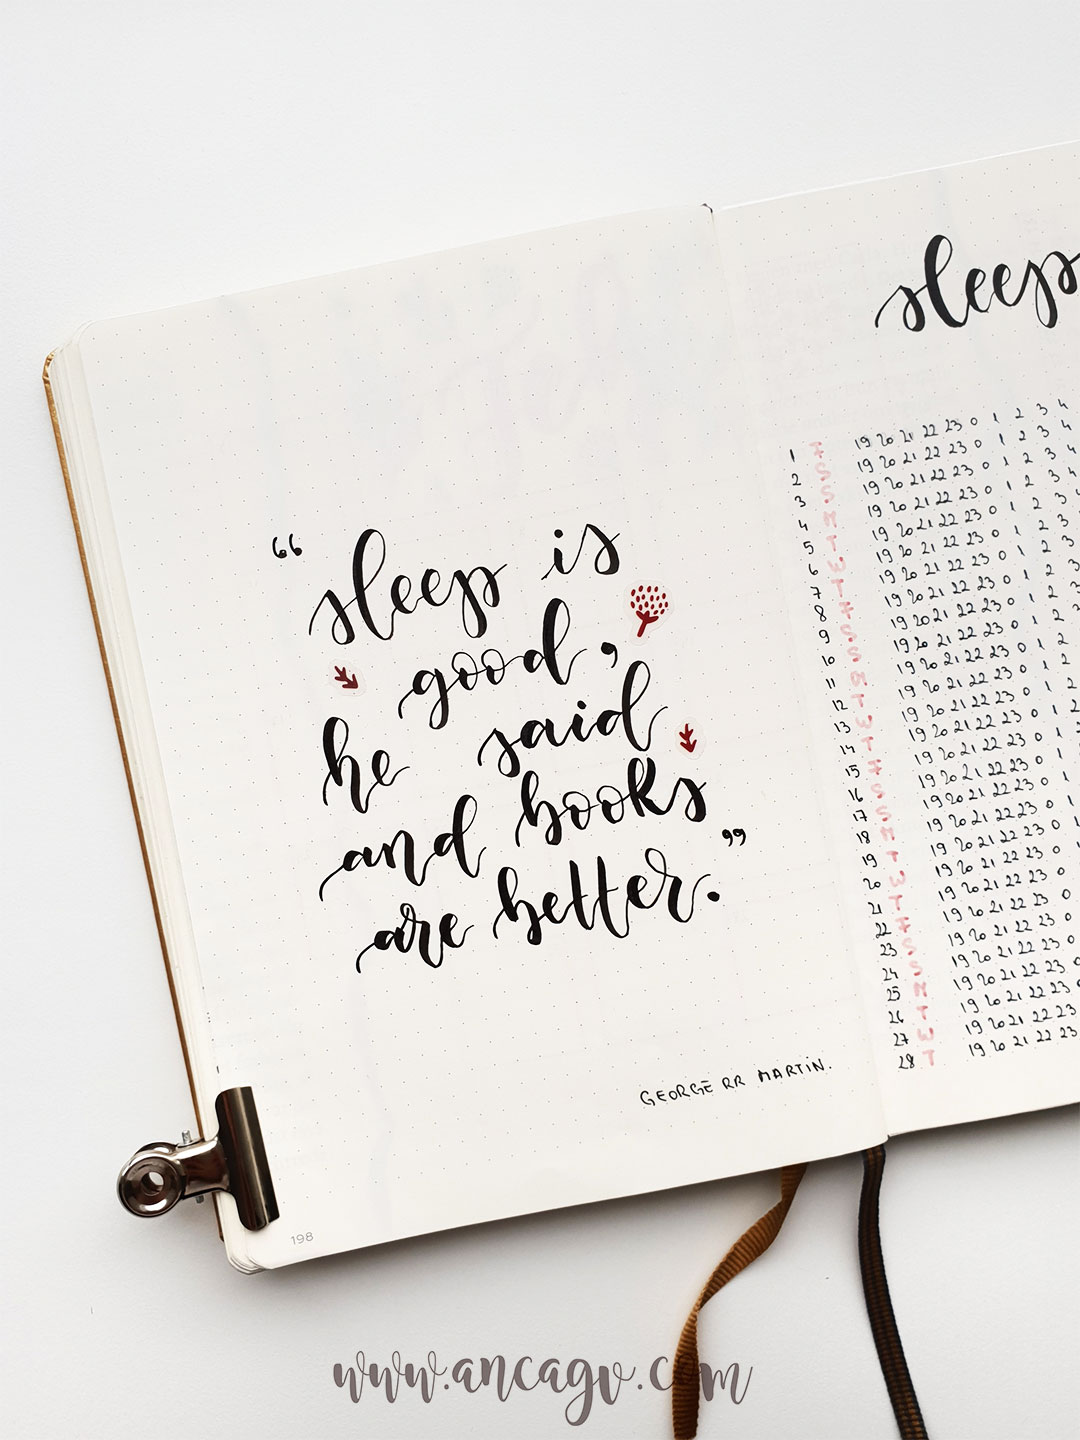 sleep
“sleep is
good,
he said
and books
are better.”
GEORGE RR MARTIN.
198
1 F 19 20 21 22 23 0 1 2 3 4
2 S 19 20 21 22 23 0 1 2 3 4
3 S 19 20 21 22 23 0 1 2 3 4
4 M 19 20 21 22 23 0 1 2 3 4
5 T 19 20 21 22 23 0 1 2 3
6 W 19 20 21 22 23 0 1 2 3
7 T 19 20 21 22 23 0 1 2 3
8 F 19 20 21 22 23 0 1 2 3
9 S 19 20 21 22 23 0 1 2
10 S 19 20 21 22 23 0 1 2
11 M 19 20 21 22 23 0 1 2
12 T 19 20 21 22 23 0 1 2
13 W 19 20 21 22 23 0 1 2
14 T 19 20 21 22 23 0 1
15 F 19 20 21 22 23 0 1
16 S 19 20 21 22 23 0 1
17 S 19 20 21 22 23 0 1
18 M 19 20 21 22 23 0 1
19 T 19 20 21 22 23 0
20 W 19 20 21 22 23 0
21 T 19 20 21 22 23 0
22 F 19 20 21 22 23 0
23 S 19 20 21 22 23 0
24 S 19 20 21 22 23 0
25 M 19 20 21 22 23
26 T 19 20 21 22 23
27 W 19 20 21 22 23
28 T 19 20 21 22 23
www.ancagv.com